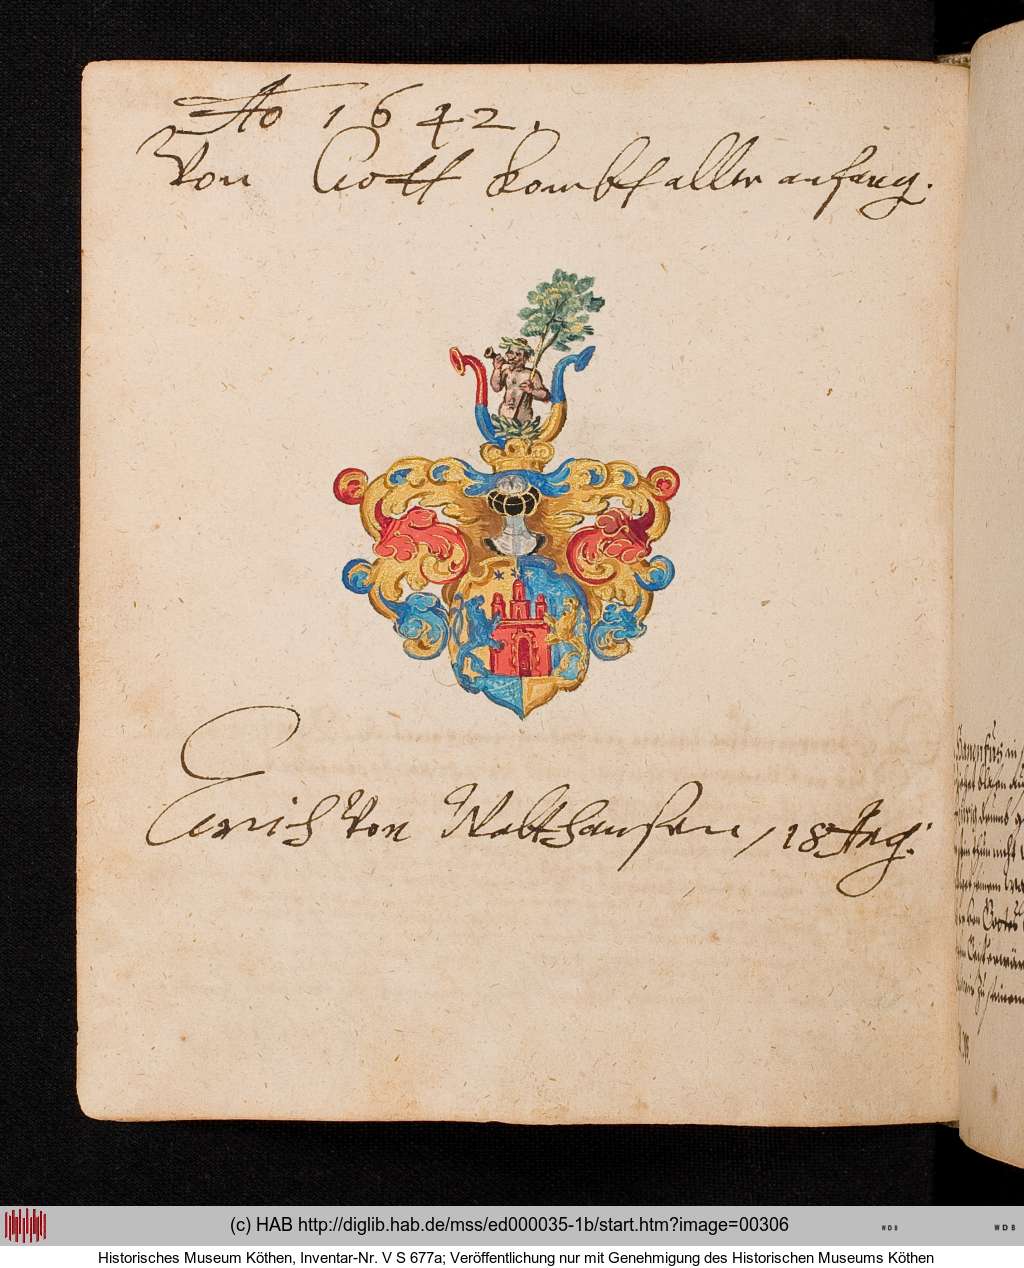 Ao 1642.
Von Gott kombt aller anfang.
Von Walthausen / 18 Aug:
(c) HAB http://diglib.hab.de/mss/ed000035-1b/start.htm?image=00306
WDB
WDB
Historisches Museum Köthen, Inventar-Nr. V S 677a; Veröffentlichung nur mit Genehmigung des Historischen Museums Köthen